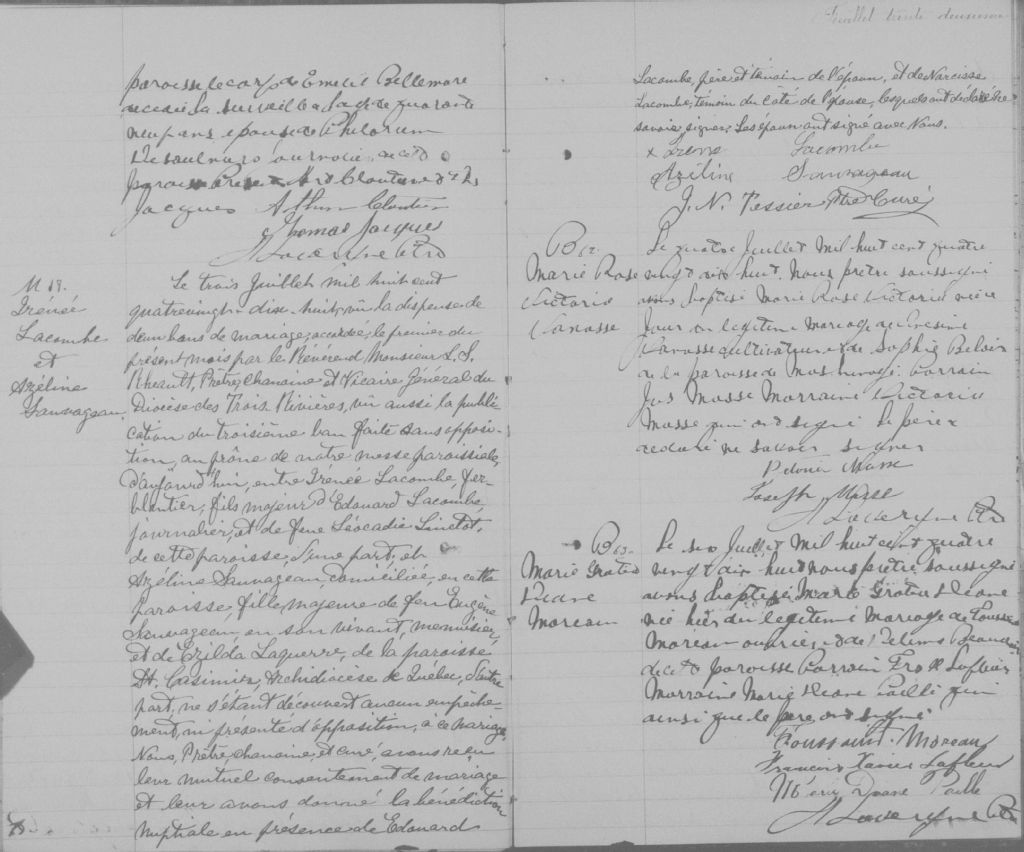 paroisse le corps de Emelie Bellemare
décédée la surveille a lage de quarante
neuf ans epouse de Philorum
Desaulniers
paroisse
Jacques Arthur Cloutier
Thomas Jacques
M 19.
Irénée
Lacombe
et
Azéline
Sauvageau.
Le trois Juillet mil huit cent
quatrevingt-dix-huit, vû la dispense de
deux bans de mariage, accordée, le premier du
présent mois par le Révérend Monsieur L. S.
Rheault, Prêtre, Chanoine et Vicaire Général du
Diocèse des Trois-Rivières, vû aussi la publi-
cation du troisième ban faite sans opposi-
tion, au prône de notre messe paroissiale,
d'aujourd'hui, entre Irénée Lacombe, fer-
blantier, fils majeur d'Edouard Lacombe,
journalier, et de feue Léocadie
de cette paroisse, d'une part, et
Azéline Sauvageau, domiciliée, en cette
paroisse, fille, majeure de feu Eugène
Sauvageau, en son vivant, menuisier,
et de Ezilda Laquerre, de la paroisse
St. Casimir, Archidiocèse de Québec, d'autre
part, ne s'étant découvert aucun empêche-
ment, ni présenté d'opposition, à ce mariage
Nous, Prêtre, chanoine, et curé, avons reçu
leur mutuel consentement de mariage
et leur avons donné la bénédiction
nuptiale en présence de Edouard
Feuillet trente deuxième
Lacombe, père et témoin de l'époux, et de Narcisse
Lacombe, témoin du côté de l'épouse, lesquels ont déclaré ne
savoir signer. Les époux ont signé avec Nous.
Lacombe
Azéline Sauvageau
J. N. Tessier Ptre Curé
B
Marie Rose
Victoria
Vanasse
Le quatre Juillet Mil-huit cent quatre
vingt dix huit. Nous prêtre soussigné
avons baptisé Marie Rose Victoria née ce
jour du légitime mariage de Onesime
Vanasse cultivateur et de Sophie
de la paroisse de Parrain
Masse Marraine Victoria
Masse qui ont signé le père a
declaré ne savoir signer
Masse
Joseph Masse
B
Marie
Diane
Moreau
Le six Juillet Mil huit cent quatre
vingt dix huit nous prêtre soussigné
avons baptisé Marie Diane
née hier du légitime Mariage de Toussaint
Moreau ouvrier et de
de cette paroisse Parrain Fro X Lafleur
Marraine Marie Diane Paillé qui
ainsi que le père ont signé
Toussaint Moreau
Francois Xavier Lafleur
Diane Paille